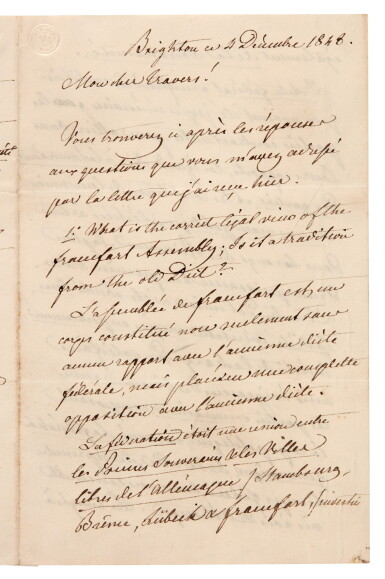 Brighton ce 4 Décembre 1848.
Mon cher Travers!
Vous trouverez ci après les réponses
aux questions que vous m'avez adressé
par la lettre que j'ai reçue hier.
1: What is the correct legal view of the
francfort Assembly; Is it a tradition
from the old Diet?
L'assemblée de francfort est un
corps constitué non seulement sans
aucun rapport avec l'ancienne diète
fédérale, mais placé en une complette
opposition avec l'ancienne diète.
La fédération étoit une union entre
les Princes Souverains & les Villes
libres de l'Allemagne (Hambourg,
Brême, Lübeck & francfort,)